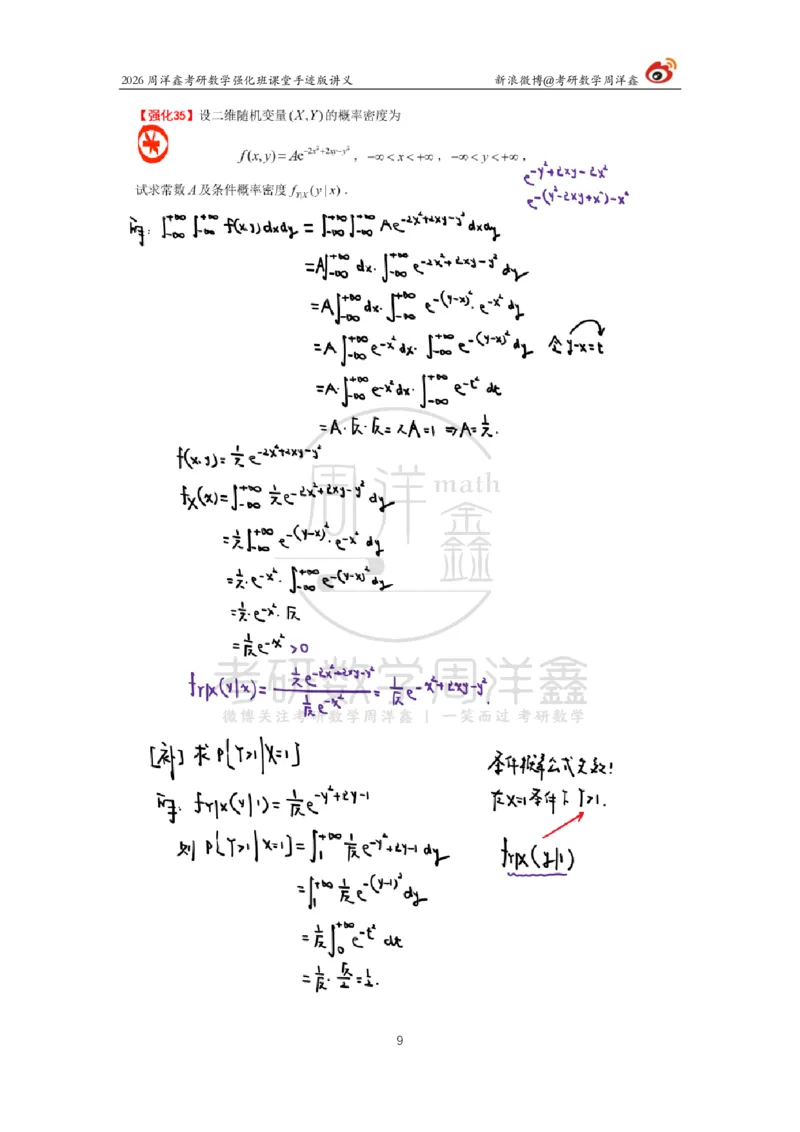 2026 周洋鑫考研数学强化班课堂手迹版讲义 新浪微博@考研数学周洋鑫
【强化35】设二维随机变量(X,Y)的概率密度为
f(x,y)=Ae^{-2x²+2xy-y²}，-∞<x<+∞，-∞<y<+∞，
e^{-y²+2xy-2x²}
试求常数A及条件概率密度f_{Y|X}(y|x)．
e^{-(y²-2xy+x²)-x²}
解: ∫_{-∞}^{+∞}∫_{-∞}^{+∞} f(x,y)dxdy = ∫_{-∞}^{+∞}∫_{-∞}^{+∞} Ae^{-2x²+2xy-y²}dxdy
=A∫_{-∞}^{+∞}dx·∫_{-∞}^{+∞}e^{-2x²+2xy-y²}dy
=A∫_{-∞}^{+∞}dx·∫_{-∞}^{+∞}e^{-(y-x)²}·e^{-x²}dy
=A∫_{-∞}^{+∞}e^{-x²}dx·∫_{-∞}^{+∞}e^{-(y-x)²}dy 令y-x=t
=A·∫_{-∞}^{+∞}e^{-x²}dx·∫_{-∞}^{+∞}e^{-t²}dt
=A·√π·√π=πA=1 ⇒A=1/π.
f(x,y)=1/π e^{-2x²+2xy-y²}
f_X(x)=∫_{-∞}^{+∞}1/π e^{-2x²+2xy-y²}dy
=1/π∫_{-∞}^{+∞}e^{-(y-x)²}·e^{-x²}dy
=1/π·e^{-x²}·∫_{-∞}^{+∞}e^{-(y-x)²}dy
=1/π·e^{-x²}·√π
=1/√π e^{-x²}>0
f_{Y|X}(y|x)=(1/π e^{-2x²+2xy-y²})/(1/√π e^{-x²})=1/√π e^{-x²+2xy-y²}.
周洋鑫 math
考研数学周洋鑫
微博关注考研数学周洋鑫 | 一笑而过 考研数学
[补] 求P{Y>1|X=1}
条件概率公式失效!
解: f_{Y|X}(y|1)=1/√π e^{-y²+2y-1}
在X=1条件下Y>1.
则P{Y>1|X=1}=∫_1^{+∞}1/√π e^{-y²+2y-1}dy
f_{Y|X}(y|1)
=∫_1^{+∞}1/√π e^{-(y-1)²}dy
=1/√π∫_0^{+∞}e^{-t²}dt
=1/√π·√π/2=1/2.
9